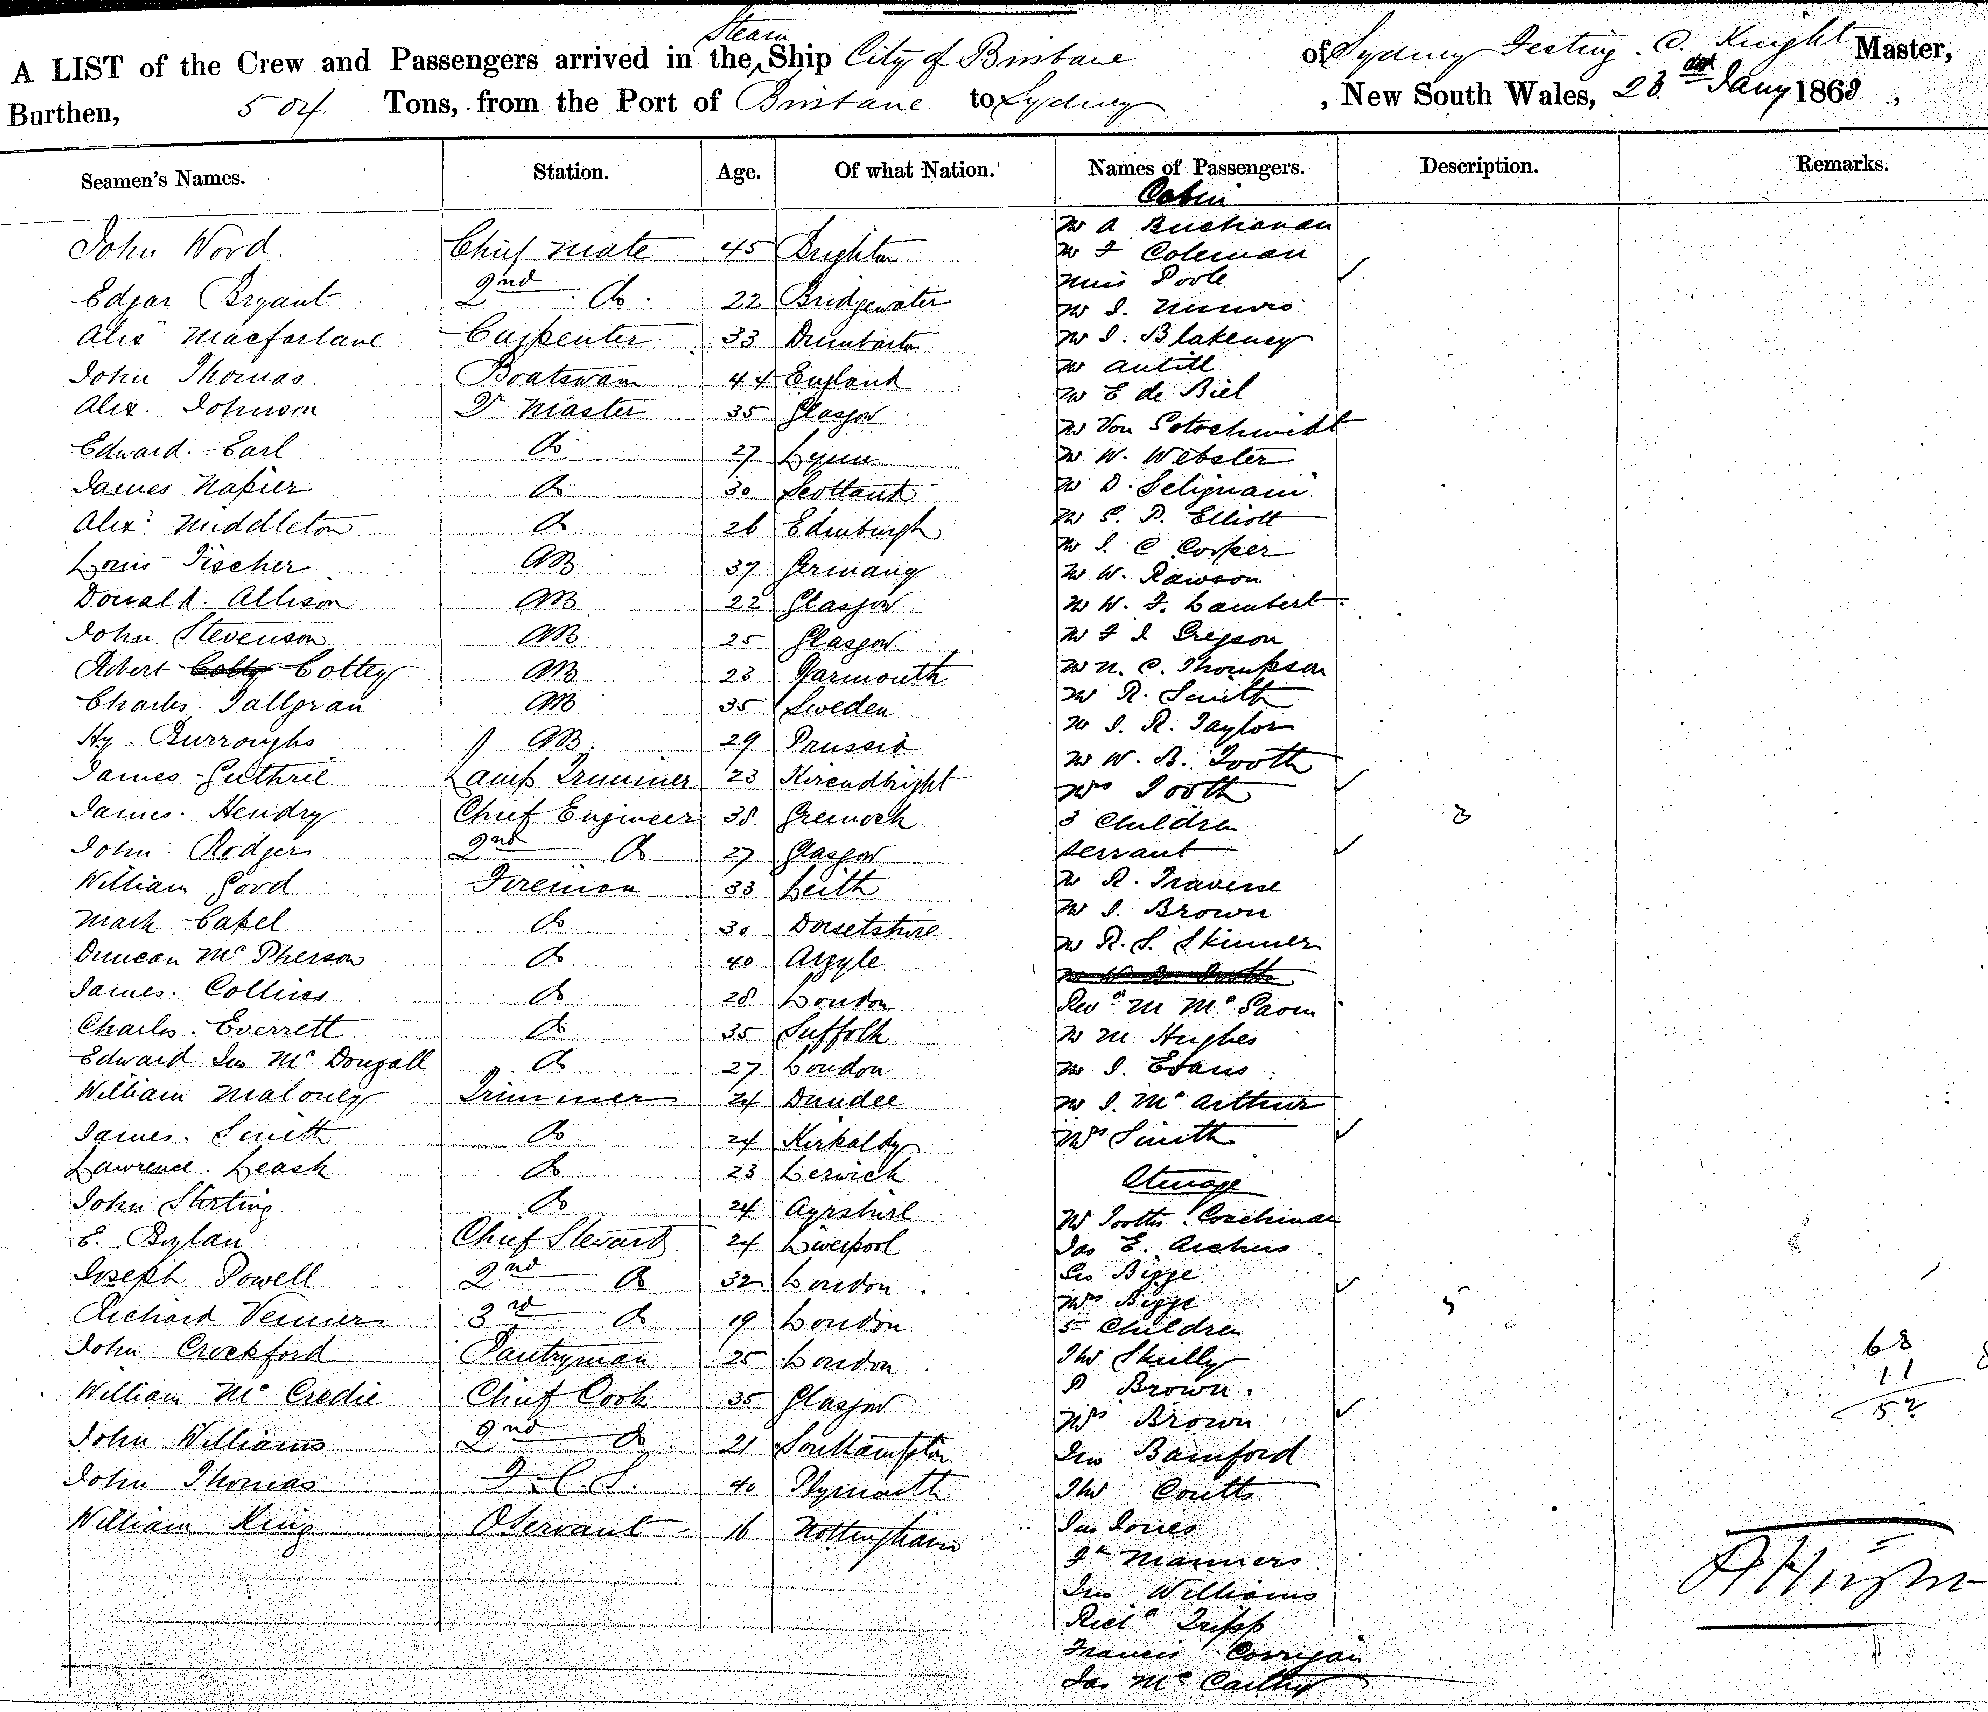 Steam
A LIST of the Crew and Passengers arrived in the Ship City of Brisbane of Sydney C. Knight Master,
Burthen, 504 Tons, from the Port of Brisbane to Sydney, New South Wales, 23 Jany 1868,
Seamen's Names. Station. Age. Of what Nation. Names of Passengers. Description. Remarks.
Cabin
Mr A Buchanan
John Word Chief Mate 45 Brighton Mr F Coleman
Miss Poole
Edgar Bryant 2nd Do 22 Bridgewater Mr J.
Alex Macfarlane Carpenter 33 Dumbarton Mr J. Blakeney
John Thomas Boatswain 44 England Mr Antill
Mr E de Biel
Alex. Johnson Qr Master 35 Glasgow Mr Von
Edward Earl Do 27 Lynn Mr W. Webster
James Napier Do 30 Scotland Mr D. Seligmann
Alexr Middleton Do 26 Edinburgh Mr S. P. Elliott
Mr J. C Cooper
Louis Fischer AB 37 Germany Mr W. Rawson
Donald Allison AB 22 Glasgow Mr W. F. Lambert
John Stevenson AB 25 Glasgow Mr F J Gregson
Robert Cotty Cottey AB 23 Yarmouth Mr N. C. Thompson
Charles Tallgran AB 35 Sweden Mr R. Smith
Hy Burroughs AB 29 Prussia Mr J. R. Taylor
Mr W. B. Tooth
James Guthrie Lamp Trimmer 23 Kircudbright Mrs Tooth
James Hendry Chief Engineer 38 Greenock 3 Children 3
John Rodger 2nd Do 27 Glasgow servant
William Good Fireman 33 Leith Mr R. Traverse
Mr J. Brown
Mark Capel Do 30 Dorsetshire Mr R. S. Skinner
Duncan McPherson Do 40 Argyle
James Collins Do 28 London Revd M Mc
Charles Everrett Do 35 Suffolk Mr M Hughes
Edward Jno McDougall Do 27 London Mr J. Evans
William Maloney Trimmer 24 Dundee Mr J. McArthur
James Smith Do 24 Kirkaldy Mrs Smith
Lawrence Leask Do 23 Lerwick
Steerage
John Storting Do 24 Ayrshire Mr Tooths Coachman
E. Bylan Chief Steward 24 Liverpool Jas E. Archers
Joseph Powell 2nd Do 32 London Geo Bigge
Mrs Bigge
Richard Venner 3rd Do 19 London 5 Children 5
John Crockford Pantryman 25 London Thos Skully
P Brown
William McCredie Chief Cook 35 Glasgow Mrs Brown
John Williams 2nd Do 21 Southampton Jno Bamford
John Thomas F.C.S. 40 Plymouth Thos Coutts
William King O Servant 16 Nottingham Jas Jones
Manners
Jno Williams
Richd Tripp
Francis Corrigan
Jas McCarthy
68
11
57